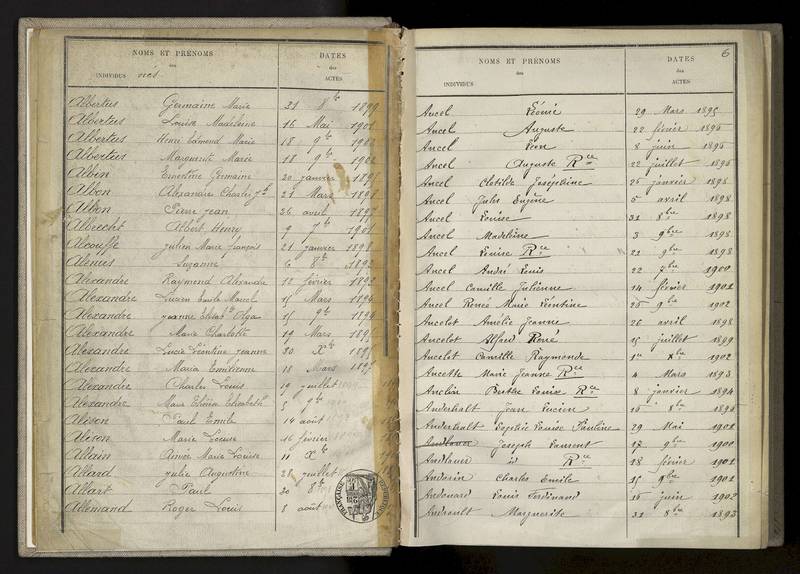 NOMS ET PRÉNOMS
des
INDIVIDUS nés
DATES
des
ACTES
Albertus Germaine Marie 21 8bre 1899
Albertus Louise Madeleine 16 Mai 1901
Albertus Henri Edmond Marie 18 9bre
Albertus Marguerite Marie 18 9bre
Albin Ernestine Germaine 20 janvier
Albon Alexandre Charles 21 Mars
Albon Pierre Jean 26 avril
Albrecht Albert Henry 9 7bre 1901
Alcouffe Julien Marie François 21 janvier 1898
Suzanne 6 8bre
Alexandre Raymond Alexandre 12 février
Alexandre Lucien Emile Marcel 15 Mars 1894
Alexandre Jeanne Olga 15 9bre 1894
Alexandre Marie Charlotte 19 Mars
Alexandre Lucie Léontine Jeanne 30 Xbre
Alexandre Maria Emilienne 18 Mars
Alexandre Charles Louis 19 juillet
Alexandre Marie Elisabeth 5 9bre
Alison Paul Emile 14 août
Alison Marie Louise 16 février
Allain Aimée Marie Louise 10 Xbre
Allard Julie Augustine 28 juillet
Allart Paul 30 8bre
Allemand Roger Louis 8 août
6
NOMS ET PRÉNOMS
des
INDIVIDUS
DATES
des
ACTES
Ancel Léonie 29 Mars 1895
Ancel Auguste 22 février 1896
Ancel Léon 8 juin 1896
Ancel Auguste Rce 22 juillet 1896
Ancel Clotilde Joséphine 25 janvier 1898
Ancel Jules Eugène 5 avril 1898
Ancel Louise 31 8bre 1898
Ancel Madeleine 3 9bre 1898
Ancel Louise Rce 21 9bre 1898
Ancel André Louis 22 7bre 1900
Ancel Camille Julienne 14 février 1901
Ancel Renée Marie Léontine 25 9bre 1902
Ancelot Amélie Jeanne 26 avril 1898
Ancelot Alfred René 15 juillet 1899
Ancelot Camille Raymonde 1er Xbre 1902
Ancette Marie Jeanne Rce 4 Mars 1893
Anclin Berthe Louise Rce 8 janvier 1894
Anderhalt Jean Lucien 16 8bre 1896
Anderhalt Sophie Louise Pauline 29 Mai 1901
Andlauer Joseph Laurent 17 9bre 1900
Andlauer id Rce 18 février 1901
Andorin Charles Emile 15 9bre 1901
Andouard Louis Ferdinand 16 juin 1902
Andrault Marguerite 31 8bre 1893